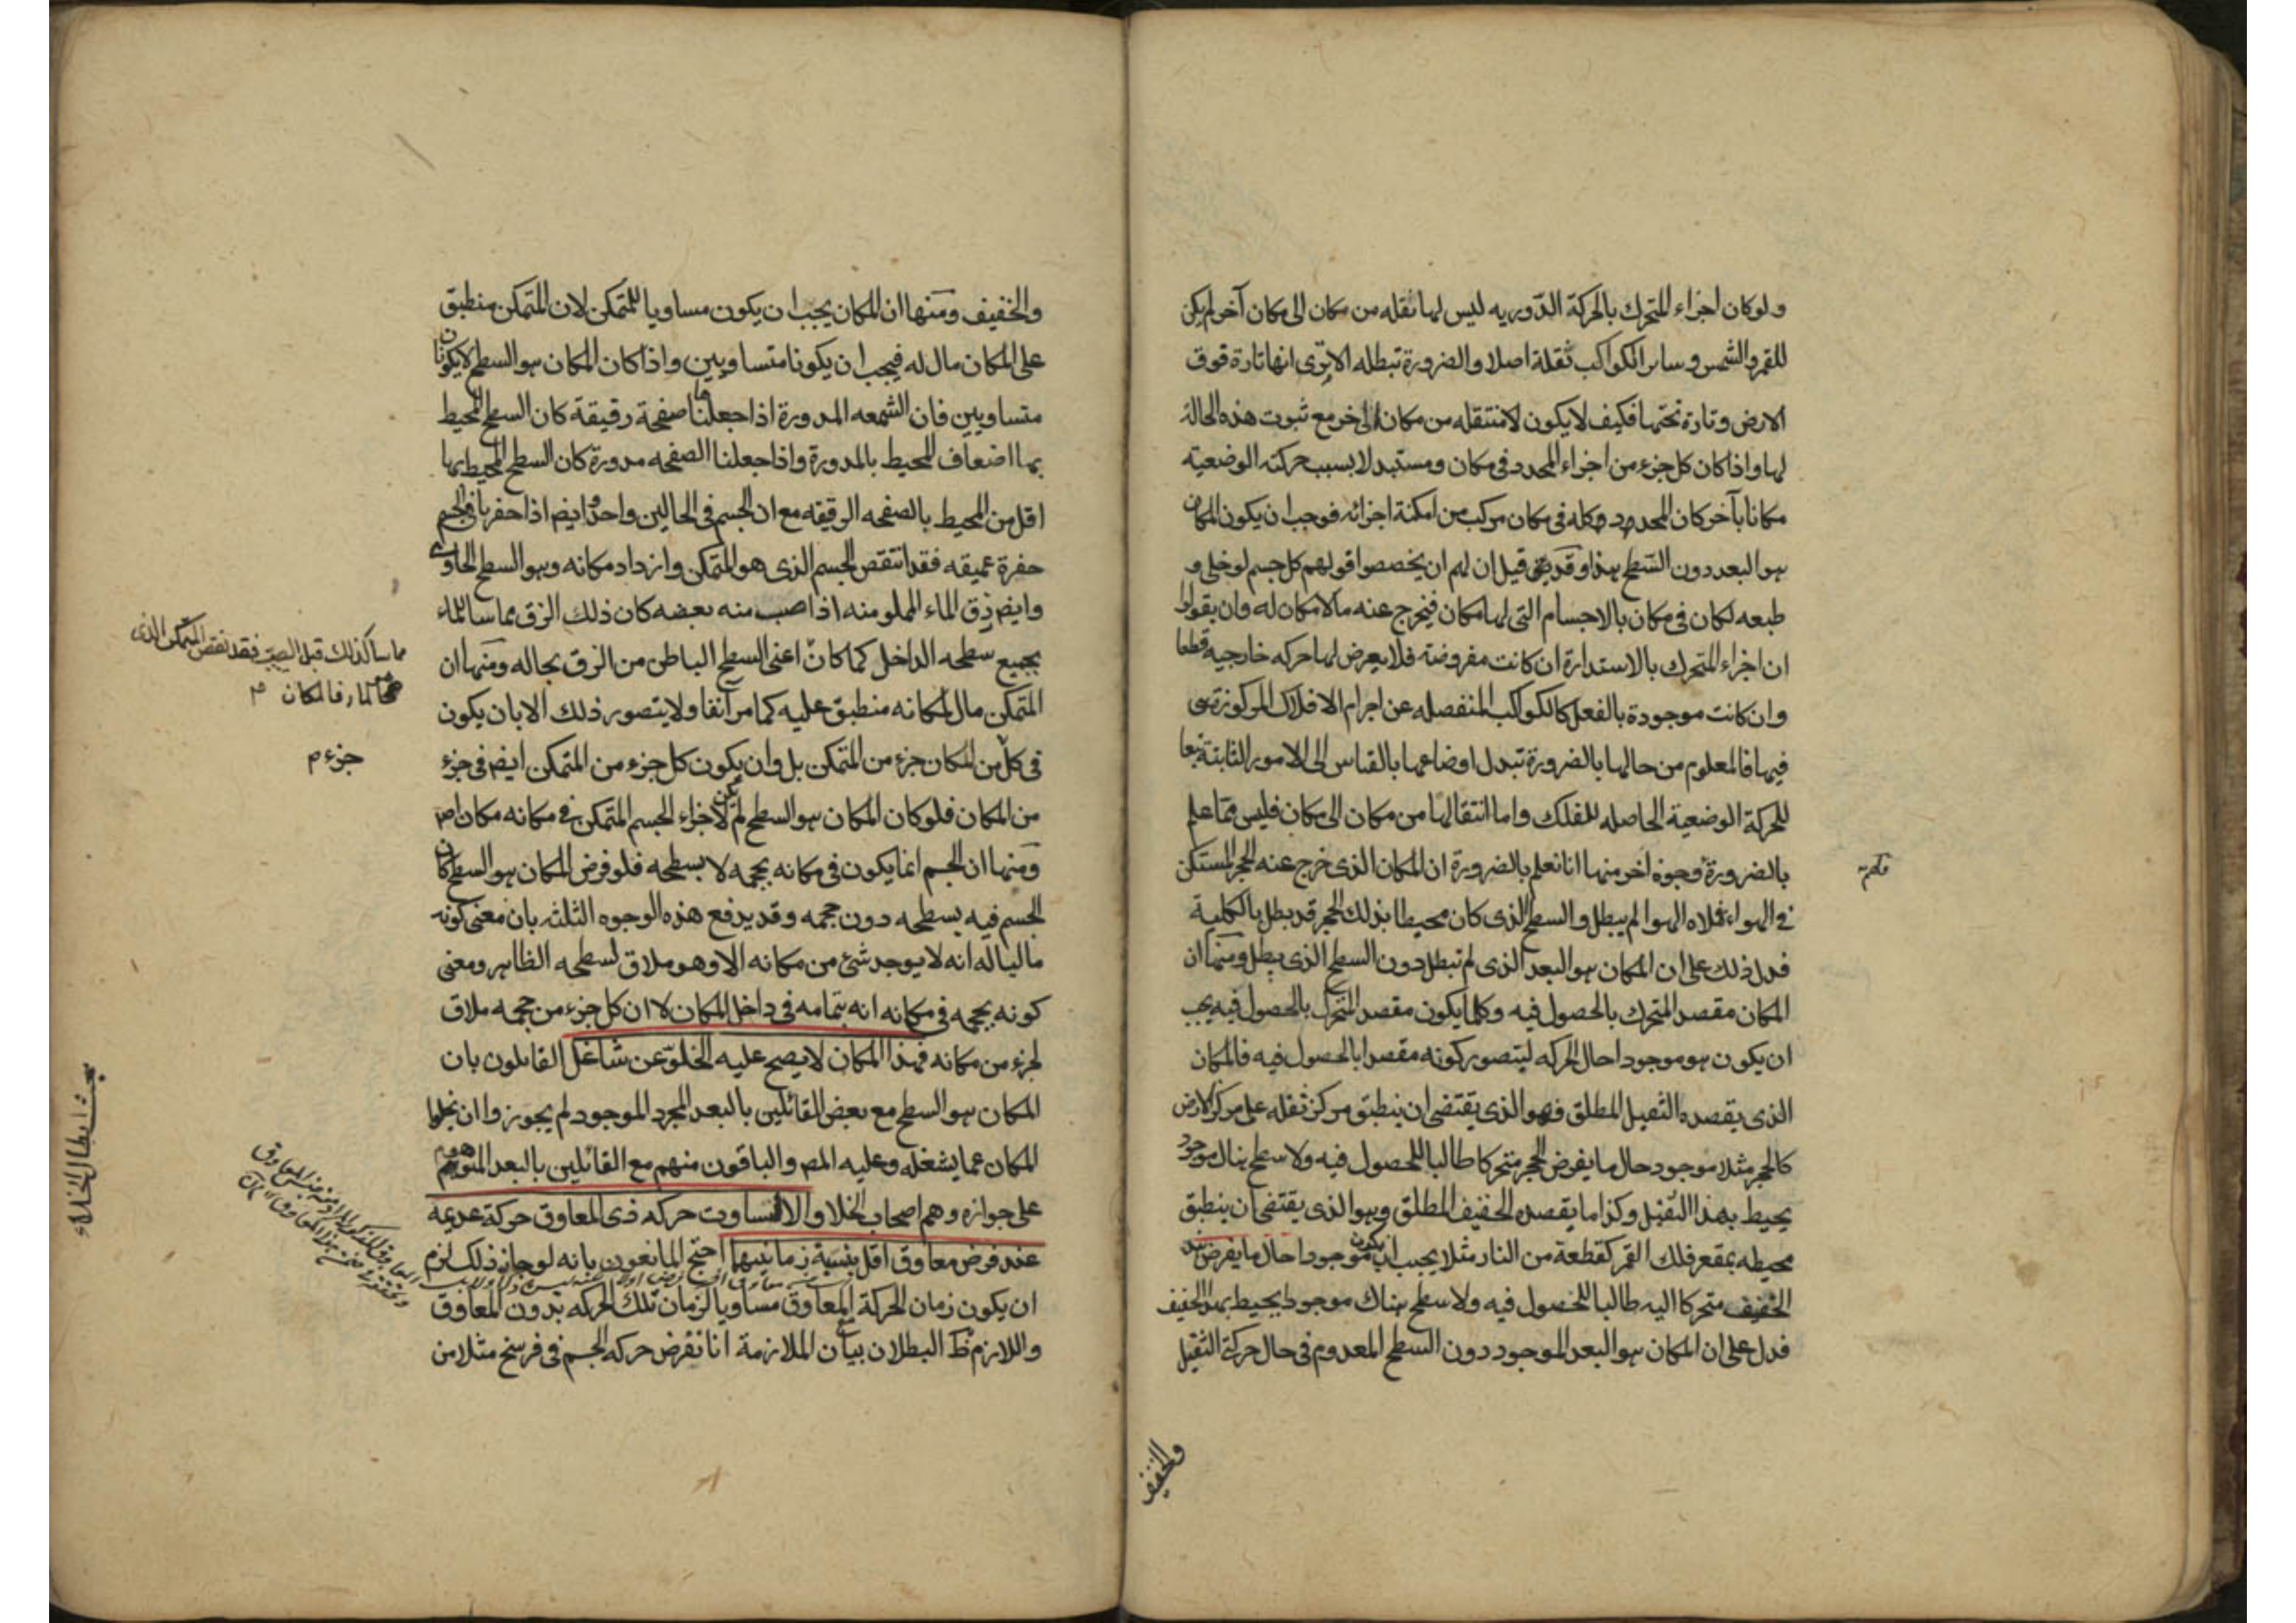 ولو كان اجزاء المتحرك بالحركة الدورية ليس لها نقله من مكان الى مكان آخر لم يكن
للقمر والشمس وساير الكواكب نقلة اصلا والضرورة تبطله الا ترى انها تارة فوق
الارض وتارة تحتها فكيف لا يكون لا منتقله من مكان الى اخر مع ثبوت هذه الحالة
لها واذا كان كل جزء من اجزاء المحدد في مكان ومستبدلا بسبب حركته الوضعية
مكانا بآخر كان المحدد وكله في مكان مركب من امكنة اجزائه فوجب ان يكون المكان
هو البعد دون السطح هذا وقد قيل ان لهم ان يخصصوا قولهم كل جسم لو خلى و
طبعه لكان في مكان بالاجسام التي لها مكان فيخرج عنه ما لا مكان له وان يقولوا
ان اجزاء المتحرك بالاستدارة ان كانت مفروضة فلا يعرض لها حركه خارجيه قطعا
وان كانت موجودة بالفعل كالكواكب المنفصله عن اجرام الافلاك المركوزة هى
فيها فالمعلوم من حالها بالضرورة تبدل اوضاعها بالقياس الى الامور الثابتة تبعا
للحركة الوضعية الحاصله للفلك واما انتقالها من مكان الى مكان فليس مما علم
بالضرورة وجوه اخر منها انا نعلم بالضرورة ان المكان الذى خرج عنه الحجر المستكن
في الهواء فملاه الهوا لم يبطل والسطح الذى كان محيطا بذلك الحجر قد بطل بالكلية
فدل ذلك على ان المكان هو البعد الذى لم تبطل دون السطح الذى بطل ومنها ان
المكان مقصد المتحرك بالحصول فيه وكلما يكون مقصد المتحرك بالحصول فيه يجب
ان يكون هو موجودا حال الحركه ليتصور كونه مقصدا بالحصول فيه فالمكان
الذى يقصده الثقيل المطلق فهو الذى يقتضى ان ينطبق مركز ثقله على مركز الارض
كالحجر مثلا موجود حال ما يفرض الحجر متحركا طالبا للحصول فيه ولا سطح هناك موجود
يحيط بهذا الثقيل وكذا ما يقصده الخفيف المطلق وهو الذى يقتضى ان ينطبق
محيطه بمقعر فلك القمر كقطعة من النار مثلا يجب ان يكون موجودا حال ما يفرض هذا
الخفيف متحركا اليه طالبا للحصول فيه ولا سطح هناك موجود يحيط بهذا الخفيف
فدل على ان المكان هو البعد الموجود دون السطح المعدوم في حال حركة الثقيل
والخفيف
والخفيف ومنها ان المكان يجب ان يكون مساويا للمتمكن لان المتمكن منطبق
على المكان مال له فيجب ان يكونا متساويين واذا كان المكان هو السطح لا يكونان
متساويين فان الشمعه المدورة اذا جعلناها صفحة رقيقة كان السطح المحيط
بها اضعاف المحيط بالمدورة واذا جعلنا الصفحه مدورة كان السطح المحيط بها
اقل من المحيط بالصفحه الرقيقه مع ان الجسم في الحالين واحد وايضم اذا حفرنا في الجسم
حفرة عميقه فقد انتقص الجسم الذى هو المتمكن وازداد مكانه وهو السطح الحاوى
وايضم زق الماء المملو منه اذا صب منه بعضه كان ذلك الزق مماسا للماء
بجميع سطحه الداخل كما كان اعنى السطح الباطن من الزق بحاله ومنها ان
المتمكن مال لمكانه منطبق عليه كما مر آنفا ولا يتصور ذلك الا بان يكون
في كل من المكان جزء من المتمكن بل وان يكون كل جزء من المتمكن ايضم في جزء
من المكان فلو كان المكان هو السطح لم يكن لاجزاء الجسم المتمكن في مكانه مكان اصلا
ومنها ان الجسم انما يكون في مكانه بحجمه لا بسطحه فلو فرض المكان هو السطح كان
الجسم فيه بسطحه دون حجمه وقد يدفع هذه الوجوه الثلثه بان معنى كونه
ماليا له انه لا يوجد شئ من مكانه الا وهو ملاق لسطحه الظاهر ومعنى
كونه بحجمه في مكانه انه بتمامه في داخل المكان لا ان كل جزء من حجمه ملاق
لجزء من مكانه فهذا المكان لا يصح عليه الخلو عن شاغل القايلون بان
المكان هو السطح مع بعض القائلين بالبعد المجرد الموجود لم يجوزوا ان يخلوا
المكان عما يشغله وعليه المصـ والباقون منهم مع القائلين بالبعد الموهوم
على جوازه وهم اصحاب الخلا والا لتساوت حركه ذى المعاوق حركة عديمه
عند فرض معاوق اقل بنسبة زمانيهما احتج المانعون بانه لو جاز ذلك لزم
ان يكون زمان الحركة مع المعاوق مساويا لزمان تلك الحركه بدون المعاوق
واللازم ظ البطلان بيان الملازمة انا نفرض حركه الجسم في فرسخ مثلا من
مماسا كذلك قبل الصب فقد نقص المتمكن الذى
جزء م
بحث ابطال الخلاء